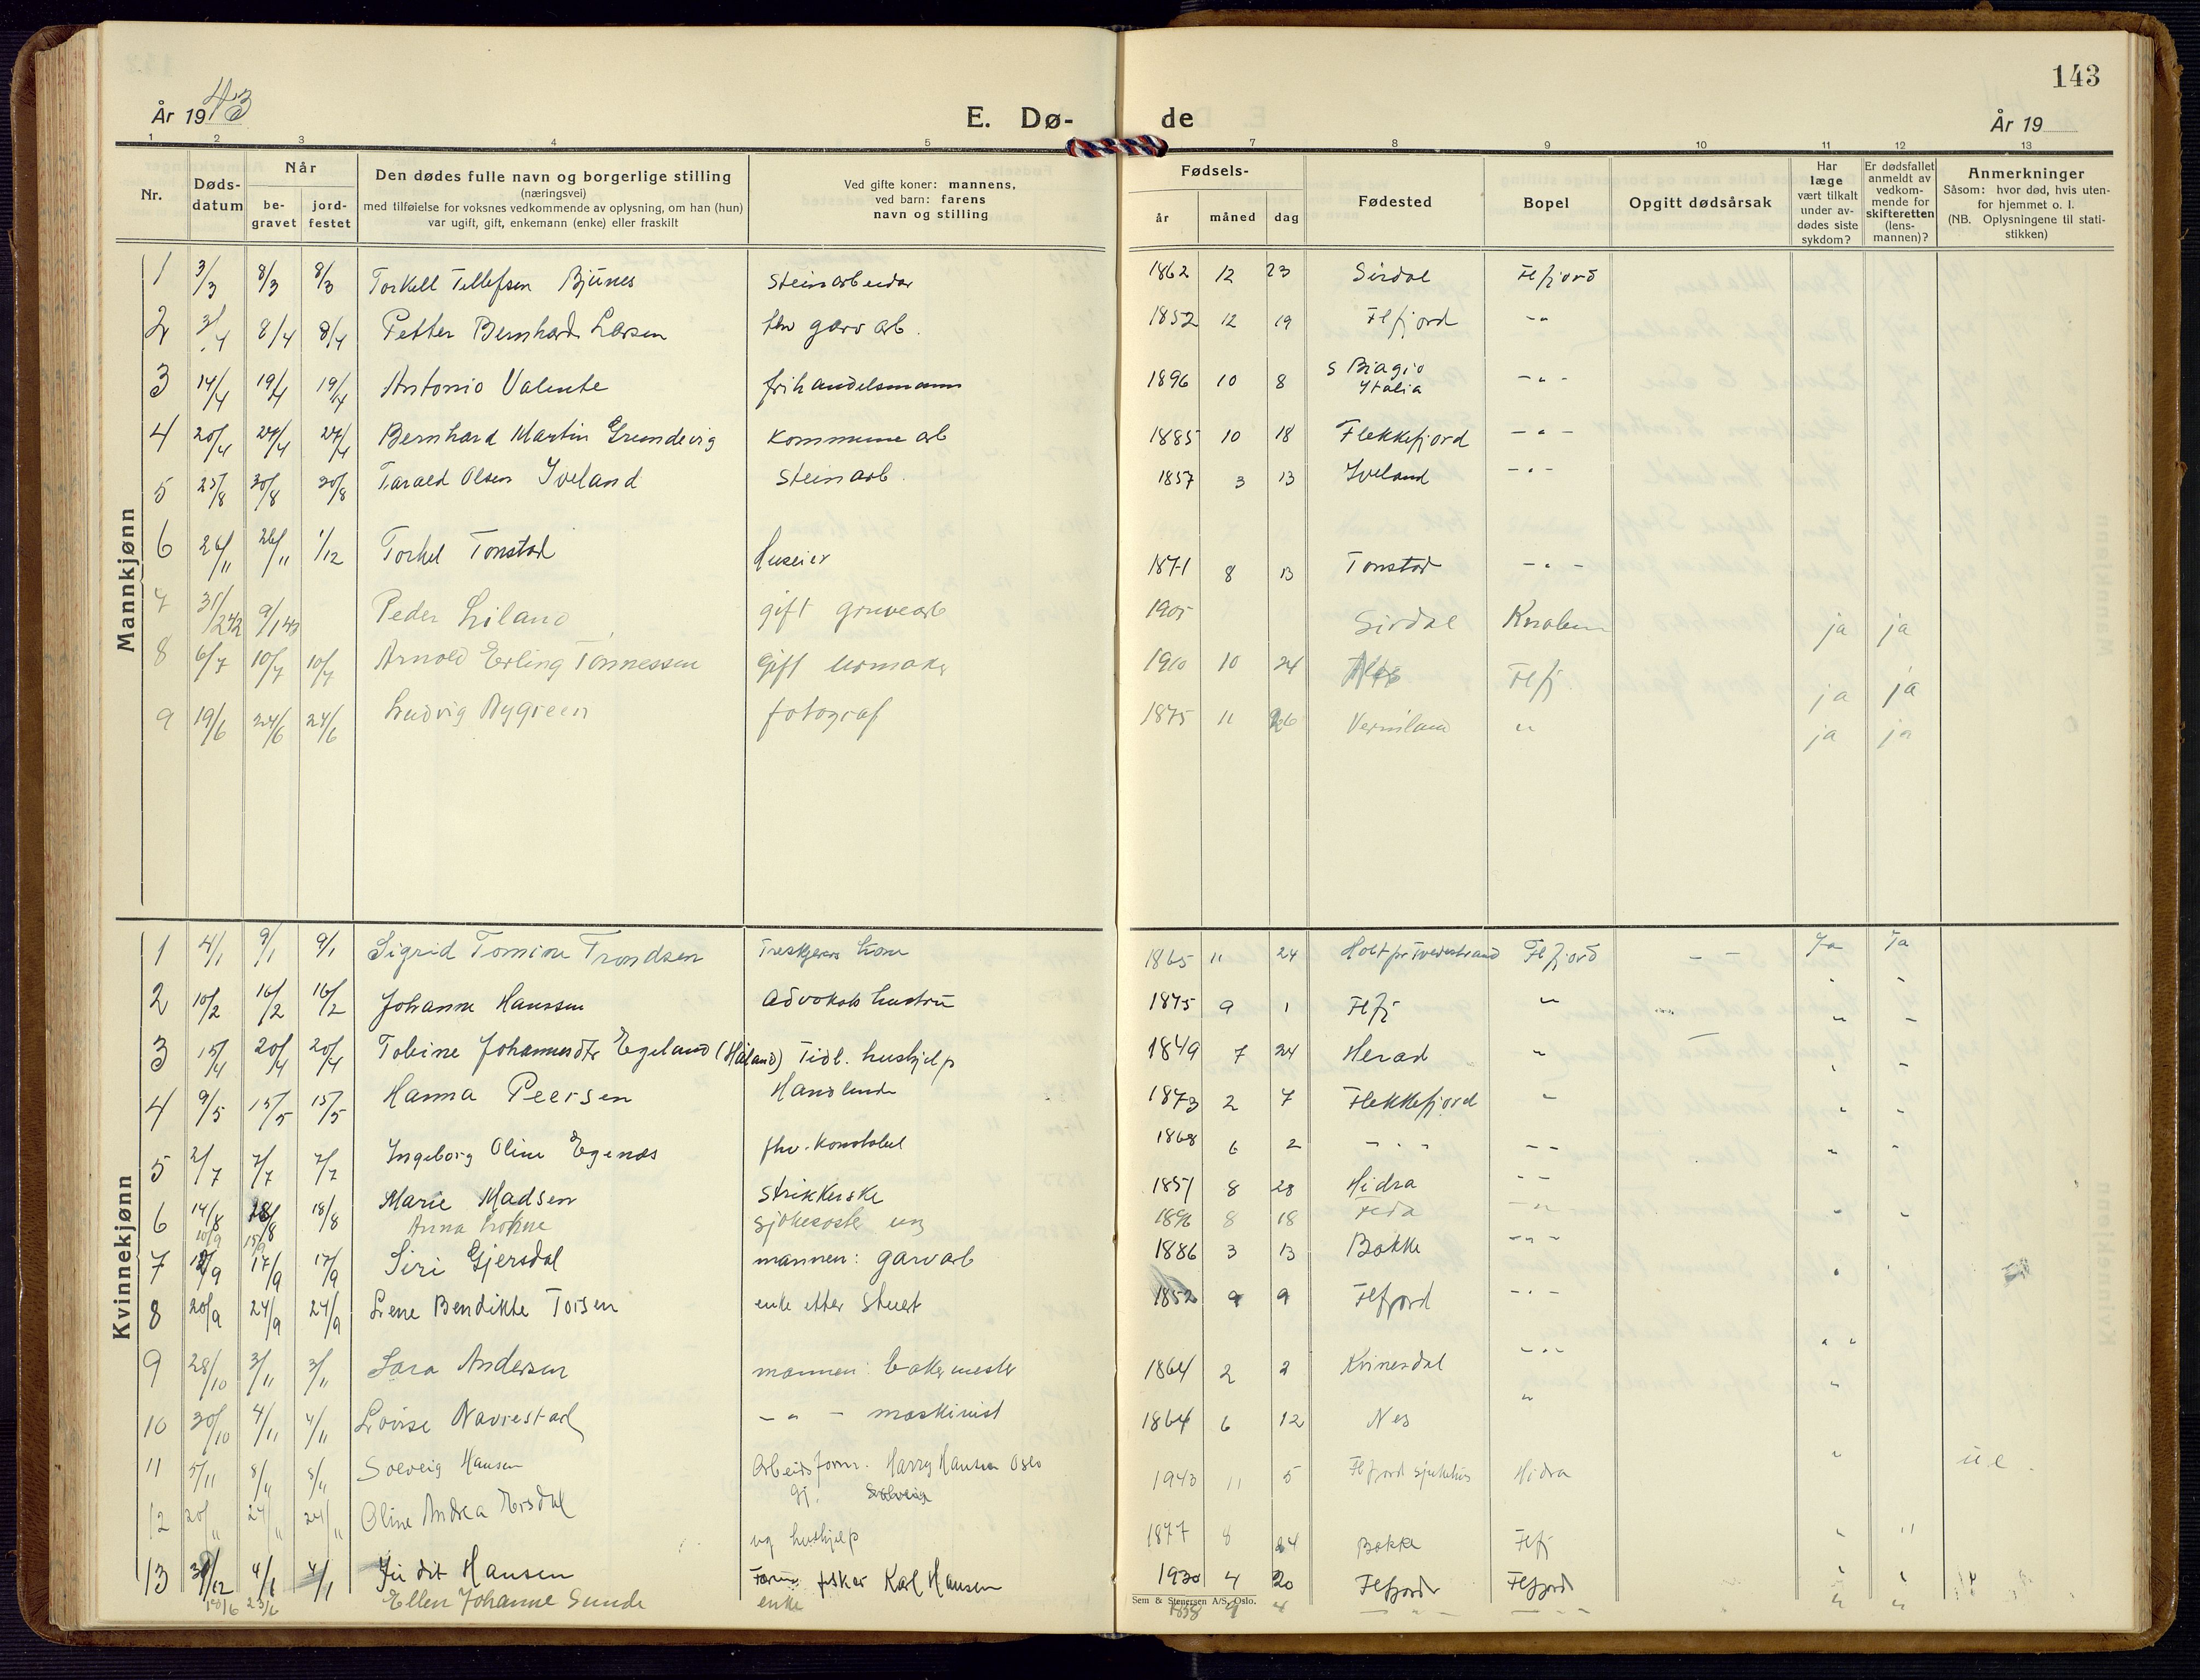 143
År 1943
E. Dø-
de
År 19
1 2 3 4 5 7 8 9 10 11 12 13
Nr.
Døds-
datum
Når
be-
gravet
jord-
festet
Den dødes fulle navn og borgerlige stilling
(næringsvei)
med tilføielse for voksnes vedkommende av oplysning, om han (hun)
var ugift, gift, enkemann (enke) eller fraskilt
Ved gifte koner: mannens,
ved barn: farens
navn og stilling
Fødsels-
år måned dag
Fødested
Bopel
Opgitt dødsårsak
Har
læge
vært tilkalt
under av-
dødes siste
sykdom?
Er dødsfallet
anmeldt av
vedkom-
mende for
skifteretten
(lens-
mannen)?
Anmerkninger
Såsom: hvor død, hvis uten-
for hjemmet o. l.
(NB. Oplysningene til stati-
stikken)
Mannkjønn
1 3/3 8/3 8/3 Torkell Tellefsen Bjunes Steinarbeider 1862 12 23 Sirdal Flfjord
2 3/4 8/4 8/4 Petter Bernhard Larsen fhv garv arb. 1852 12 19 Flfjord -"
3 14/4 19/4 19/4 Antonio Valente frihandelsmann 1896 10 8 S Biagio
Italia -"-
4 20/4 27/4 27/4 Bernhard Martin Grundevig kommune arb 1885 10 18 Flekkefjord -"-
5 25/8 30/8 30/8 Tarald Olsen Iveland Steinarb. 1857 3 13 Iveland -"-
6 26/11 1/12 Torkel Tonstad Huseier 1871 8 13 Tonstad -"-
7 31/12 42 9/1 43 Peder Liland gift gruvearb 1905 Sirdal Knaben ja ja
8 6/7 10/7 10/7 Arnold Erling Tønnessen gift urmaker 1910 10 24 Flfj. ja ja
9 19/6 24/6 24/6 Ludvig Nygreen fotograf 1875 11 26 Vermland " ja ja
Kvinnekjønn
1 4/1 9/1 9/1 Sigrid Tomine Trondsen Treskjerers kone 1865 11 24 Holt pr Tvedestrand Flfjord - - Ja Ja
2 10/2 16/2 16/2 Johanne Hanssen Advokats hustru 1875 9 1 Flfj "
3 15/4 20/4 20/4 Tobine Johannesdtr Egeland (Håland) Tidl. hushjelp 1849 7 24 Herad "
4 9/5 15/5 15/5 Hanna Peersen Handlende 1873 2 7 Flekkefjord "
5 2/7 7/7 7/7 Ingeborg Oline Egenæs fhv. konstabel 1868 6 2 - " - - -
6 14/8 18/8 18/8 Marie Madsen Strikkerske 1857 8 28 Hidra - -
10/9 15/9 Anna sjukesøster ug 1896 8 18 Feda -"-
7 17/9 17/9 Siri Gjersdal mannen: garvarb 1886 3 13 Bakke -"-
8 20/9 24/9 24/9 Lene Bendikte Torsen enke etter Stuert 1852 9 9 Flfjord -"-
9 28/10 3/11 3/11 Sara Andersen mannen: bakermester 1864 2 2 Kvinesdal -"-
10 30/10 4/11 4/11 Lovise Navrestad -"- maskinist 1864 6 12 Nes "
11 5/11 8/11 8/11 Solveig Hansen Arbeidsform. Harry Hansen Oslo 1943 11 5 Flfjord sjukehus Hidra " ue.
gj. Solveig
12 20/11 24/11 24/11 Oline Andrea Ersdal ug hushjelp 1877 8 24 Bakke Flfj " "
13 4/1 4/1 Judit Hansen Faren: fisker Karl Hansen 1930 4 20 Flfjord Flfjord " "
18/6 23/6 Ellen Johanne Sunde enke 1858 9 4 - " - - " - " "
Sem & Stenersen A/S, Oslo.